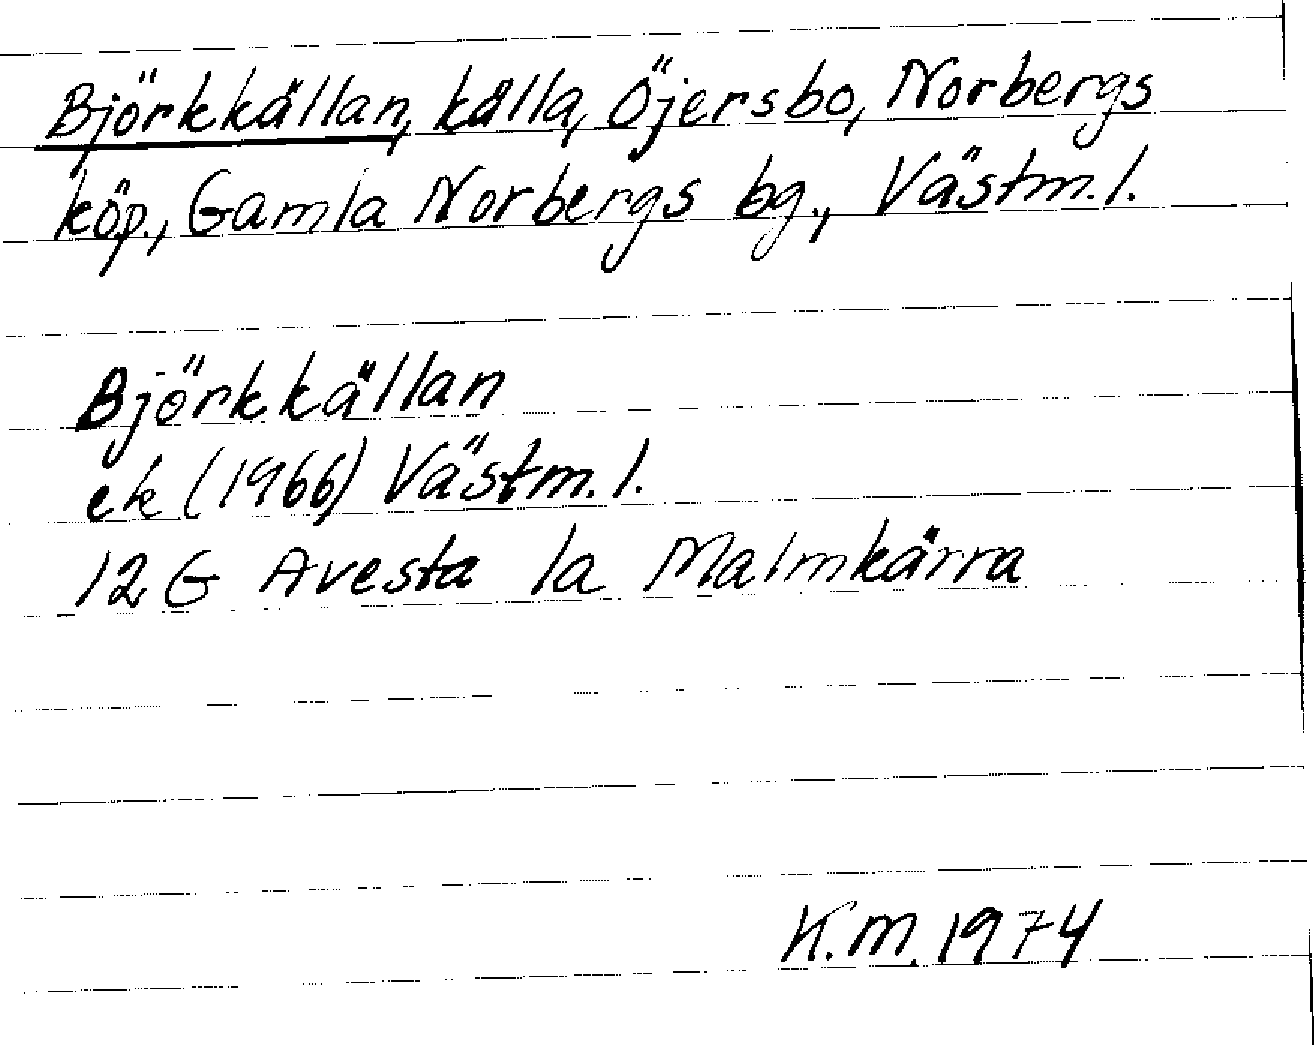 Björkkällan, källa, Öjersbo, Norbergs
köp., Gamla Norbergs bg., Västm. l.
Björkkällan
ek (1966) Västm. l.
12 G Avesta 1a Malmkärra
K.M. 1974